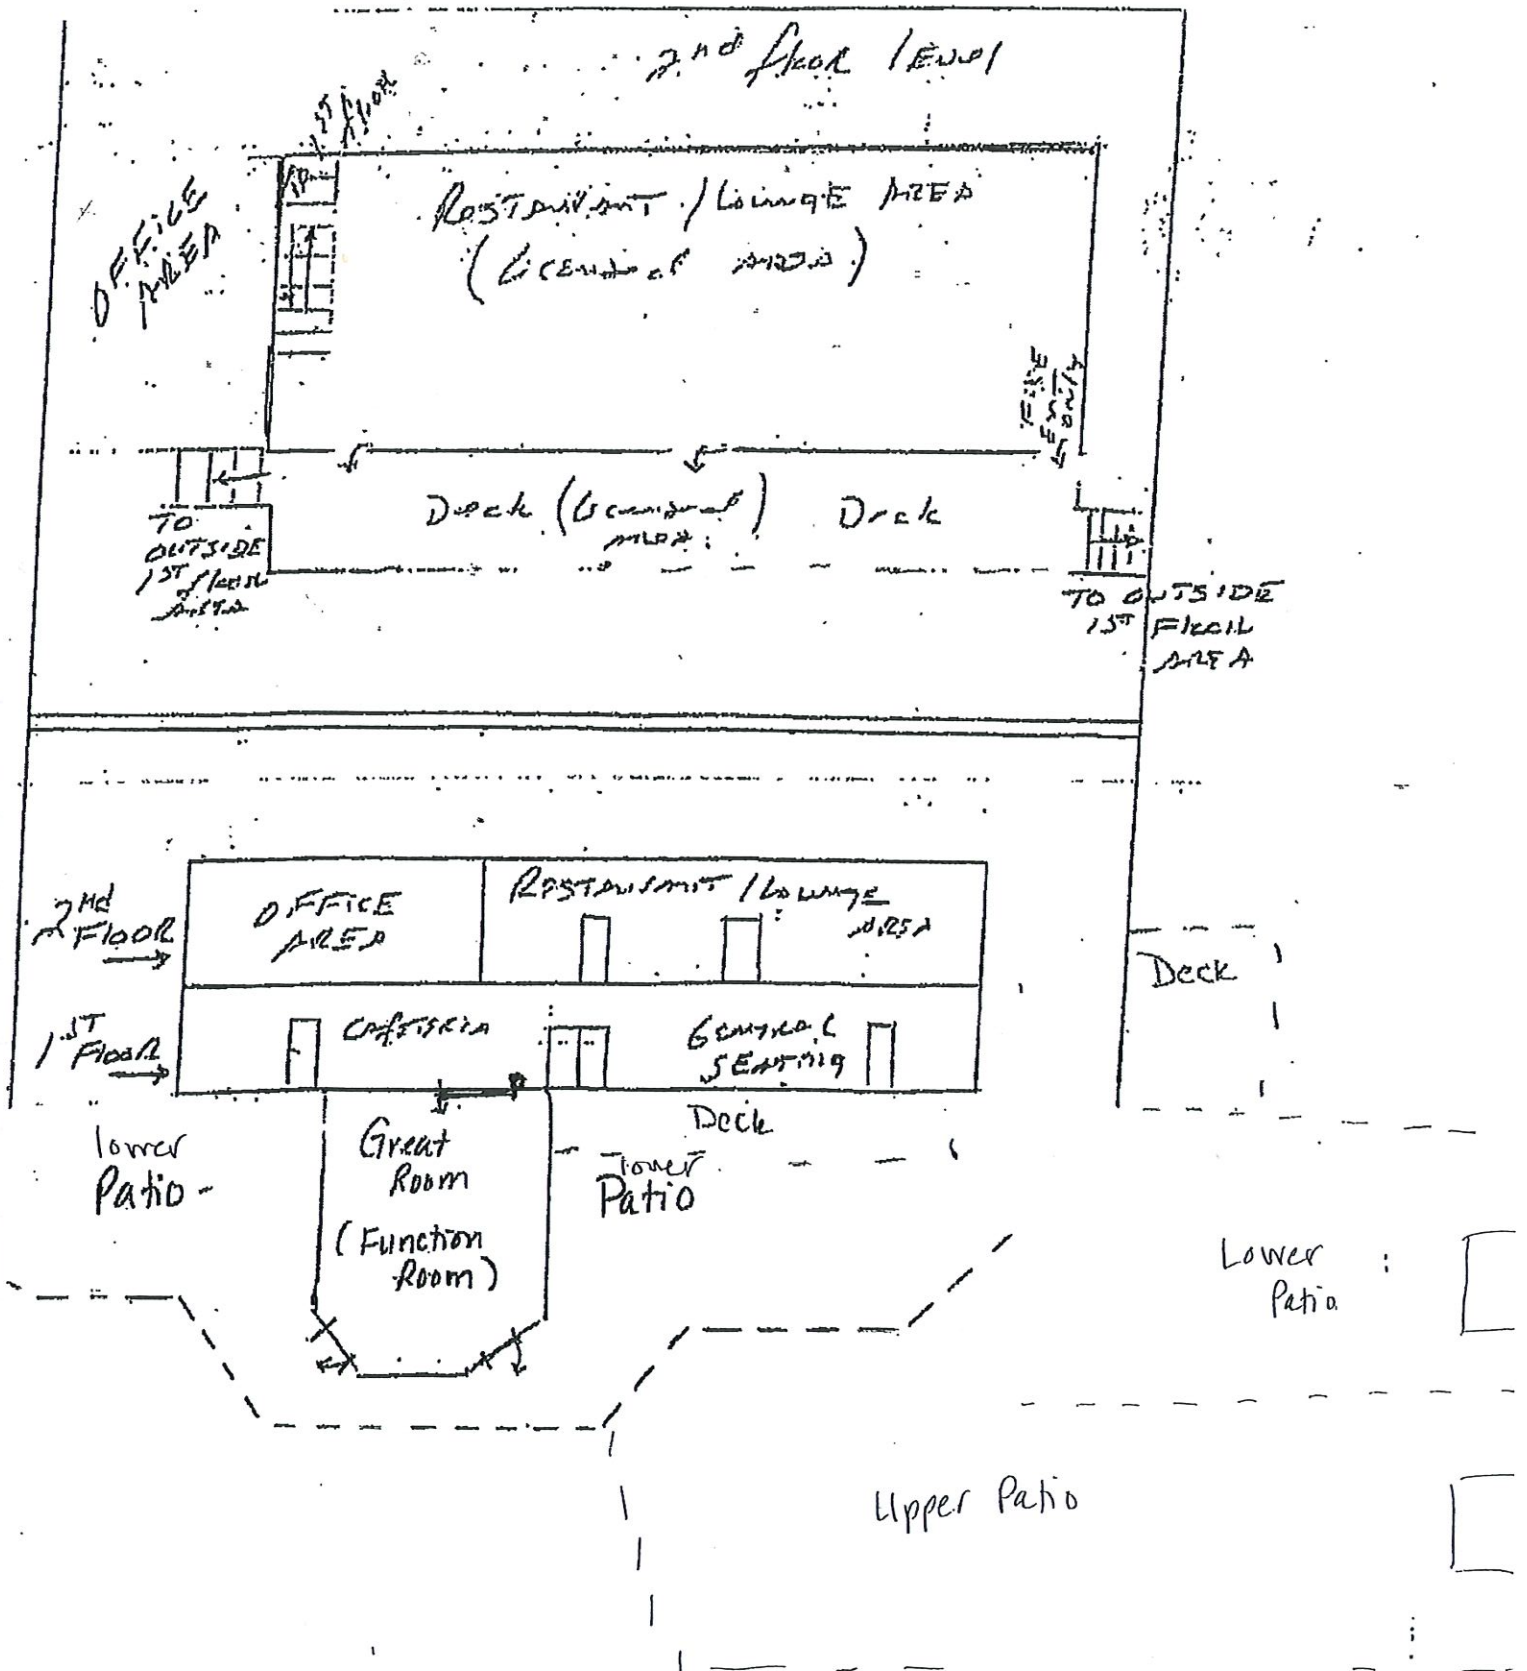 2nd floor level
1ST floor
UP
OFFICE
AREA
RESTAURANT / LOUNGE AREA
(Licensed AREA)
FIRE
EXIT
ONLY
Deck (Licensed AREA) Deck
TO
OUTSIDE
1ST floor
AREA
TO OUTSIDE
1ST FLOOR
AREA
2Nd
FLOOR
OFFICE
AREA
RESTAURANT / LOUNGE
AREA
Deck
1ST
FLOOR
CAFETERIA
GENERAL
SEATING
Deck
lower
Patio
Great
Room
(Function
Room)
lower
Patio
Lower
Patio
Upper Patio